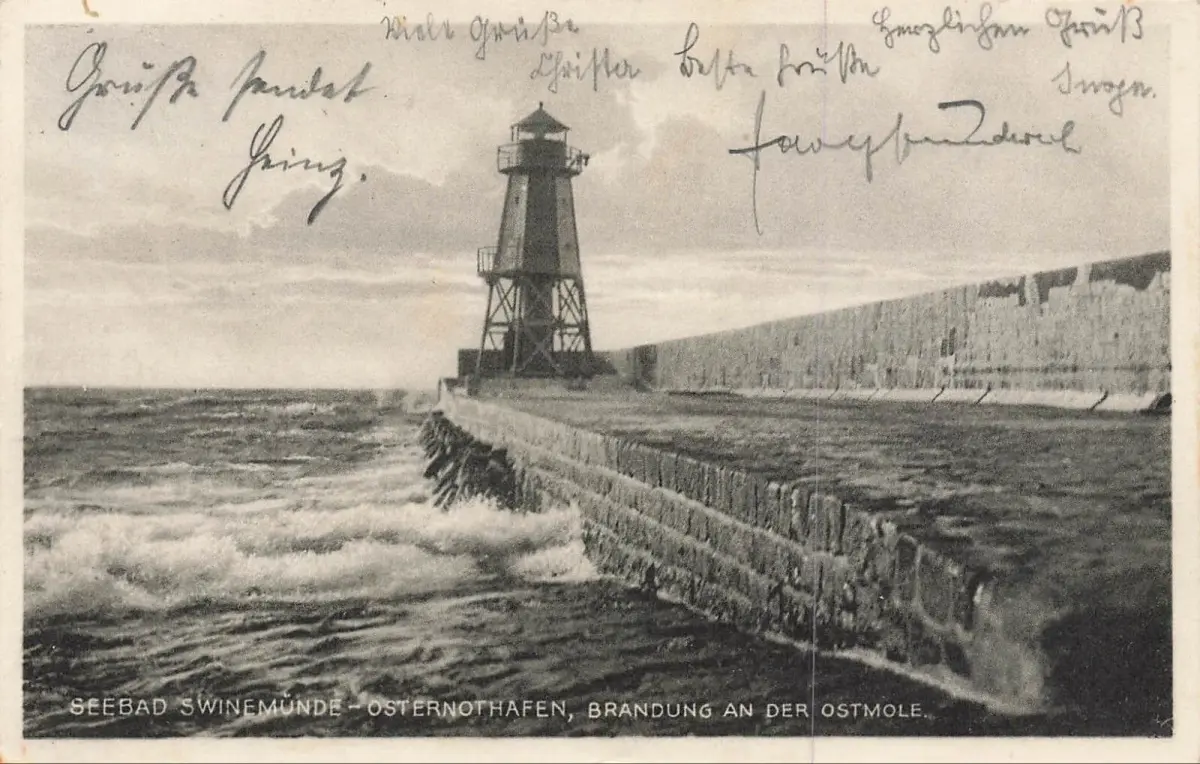 Grüße sendet
Heinz.
Viele Grüße
Christa
Beste Grüße
Herzlichen Gruß
SEEBAD SWINEMÜNDE – OSTERNOTHAFEN, BRANDUNG AN DER OSTMOLE.